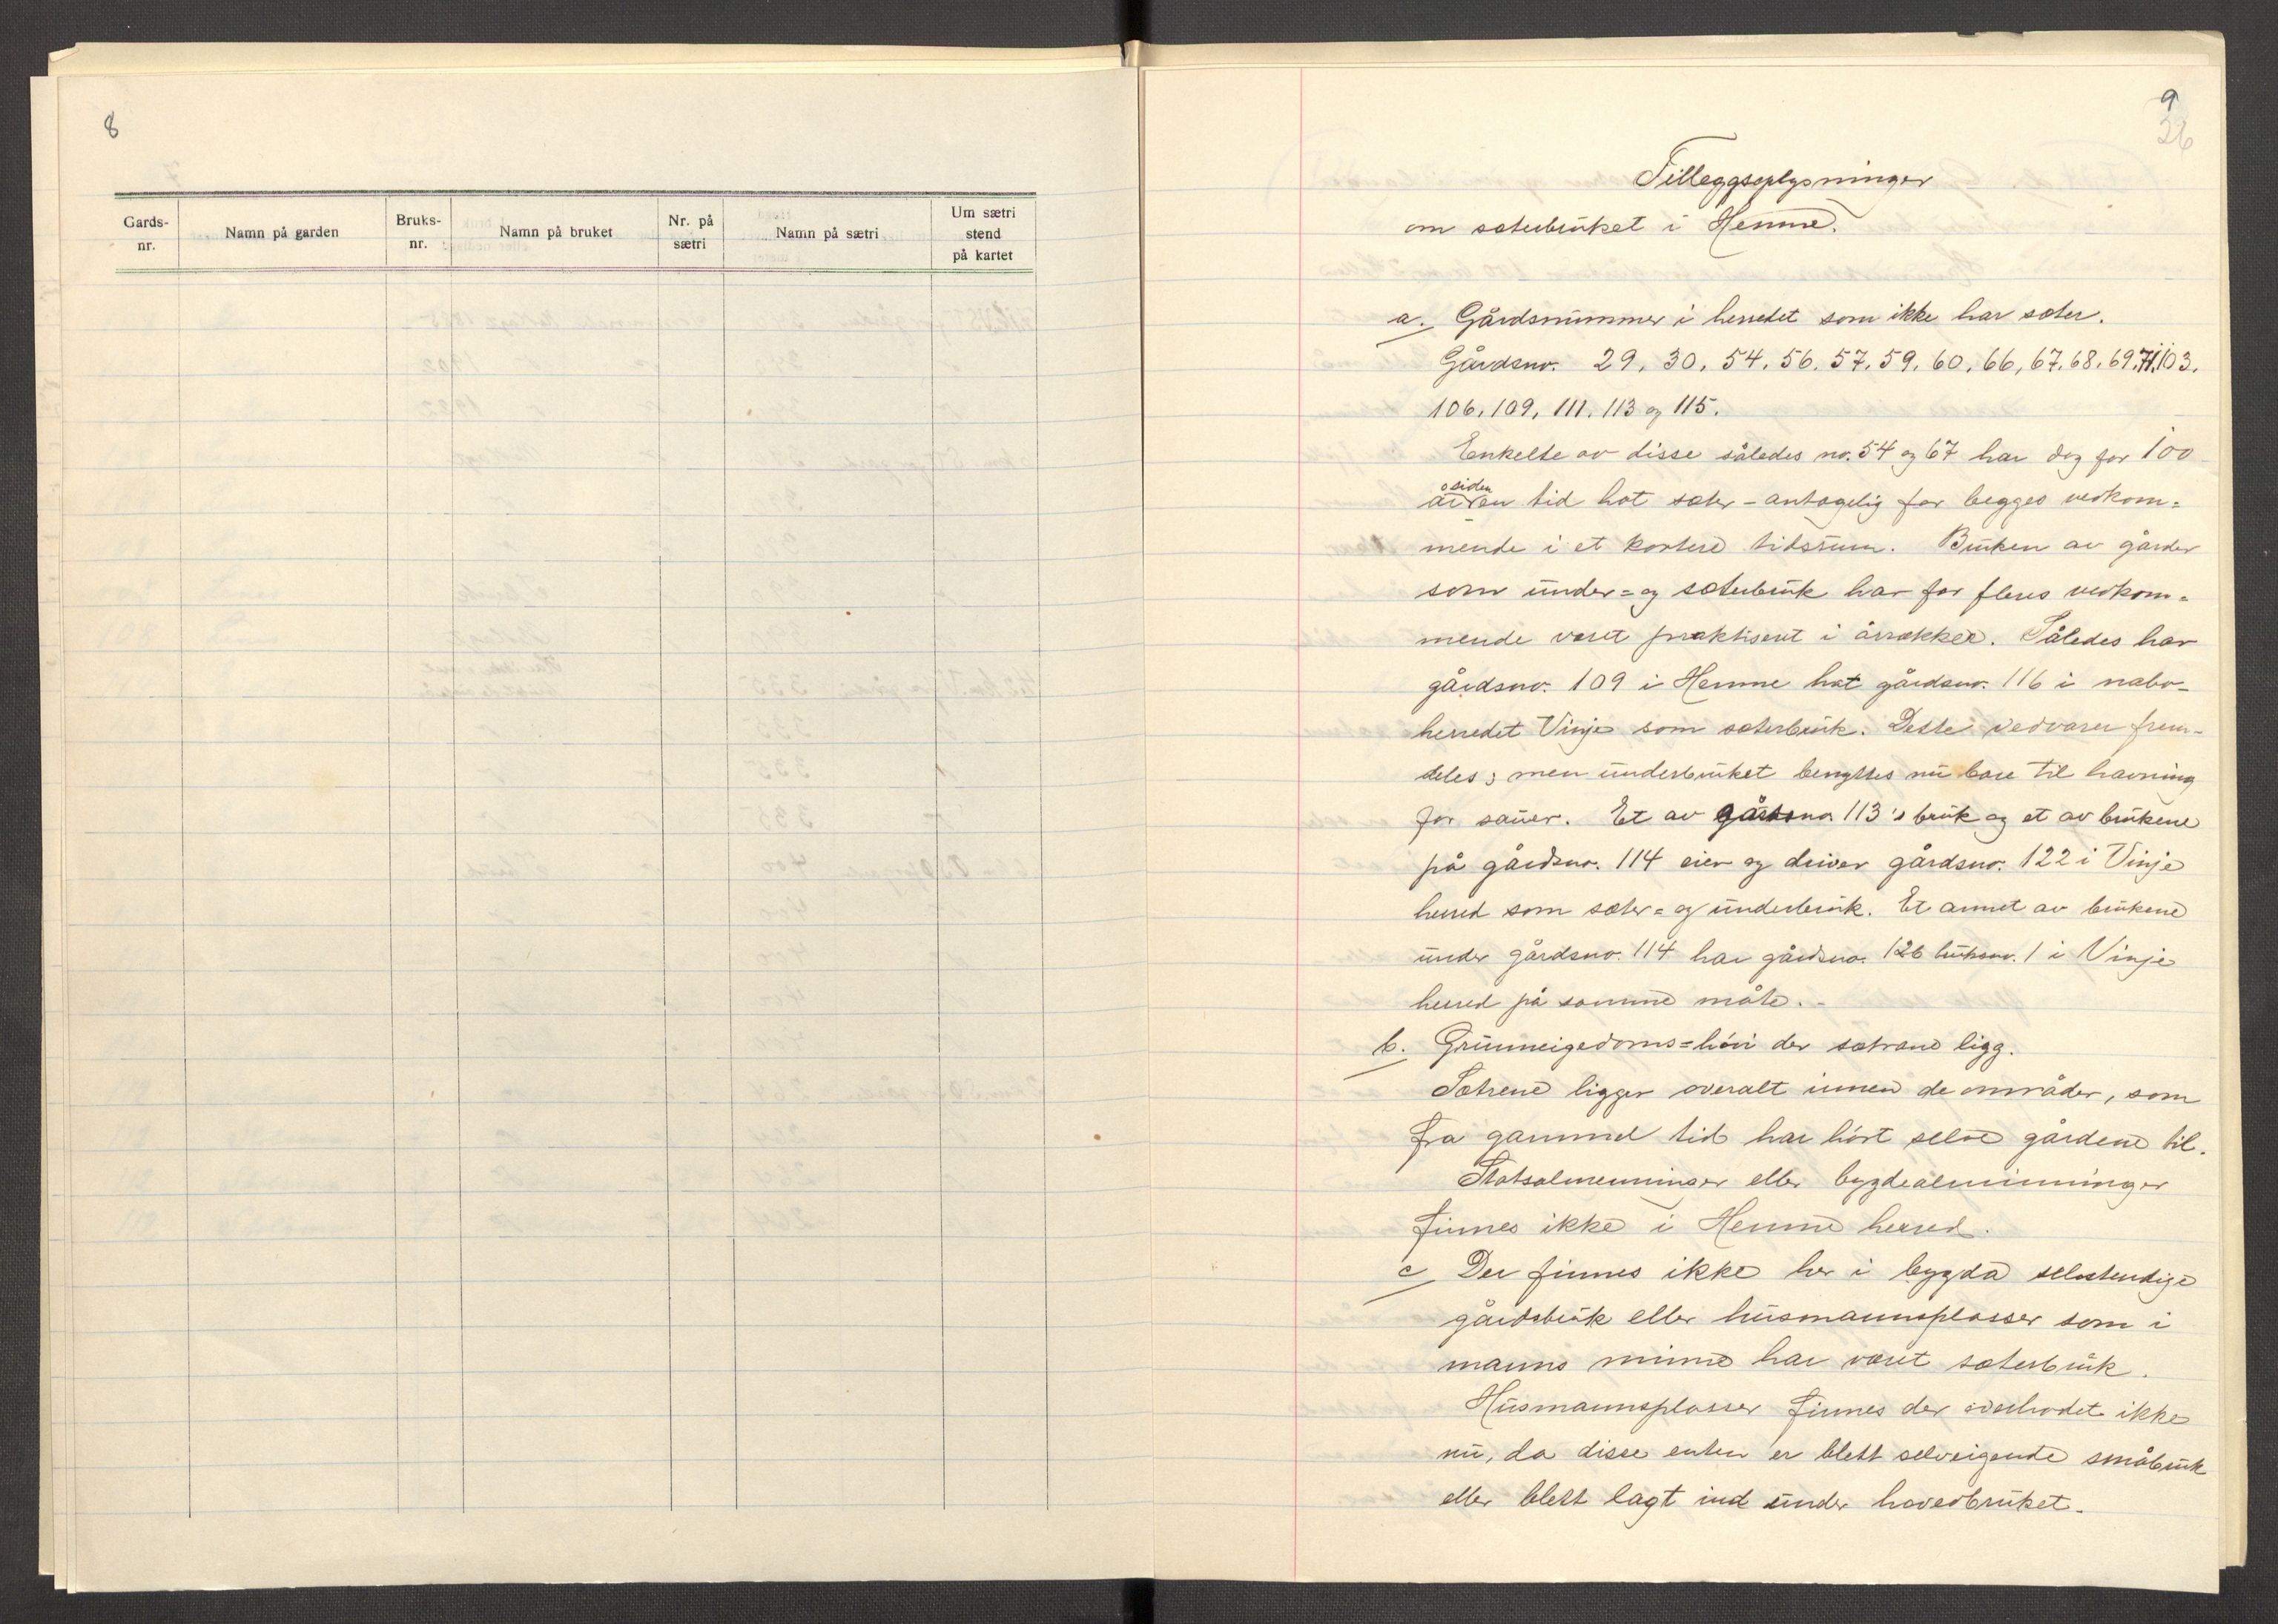 8
Gards-
nr.
Namn på garden
Bruks-
nr.
Namn på bruket
Nr. på
sætri
Namn på sætri
Um sætri
stend
på kartet
9
26
Tilleggsoplysninger
om sæterbruket i Hemne.
a. Gårdsnummer i herredet som ikke har sæter.
Gårdsnr. 29, 30, 54, 56, 57, 59, 60, 66, 67, 68, 69, 71, 103,
106, 109, 111, 113 og 115.
Enkelte av disse således nr. 54 og 67 har dog for 100
år siden en tid hat sæter - antagelig for begges vedkom-
mende i et kortere tidsrum. Bruken av gårder
som under- og sæterbruk har for fleres vedkom-
mende været praktisert i årrekker. Således har
gårdsnr. 109 i Hemne hat gårdsnr. 116 i nabo-
herredet Vinje som sæterbruk. Dette vedvarer frem-
deles; men underbruket benyttes nu bare til havning
for sauer. Et av gårdsnr. 113's bruk og et av brukene
på gårdsnr. 114 eier og driver gårdsnr. 122 i Vinje
herred som sæter- og underbruk. Et annet av brukene
under gårdsnr. 114 har gårdsnr. 126 bruksnr. 1 i Vinje
herred på samme måte. -
b. Grunneigedoms-hövi der sætrane ligg.
Sætrene ligger overalt innen de områder, som
fra gammel tid har hört selve gårdene til.
Statsalmenninger eller bygdealminninger
finnes ikke i Hemne herred.
c Der finnes ikke her i bygda selvstendige
gårdsbruk eller husmannsplasser som i
manns minne har været sæterbruk.
Husmannsplasser finnes der overhodet ikke
nu, da disse enten er blett selveigende småbruk
eller blett lagt ind under hovedbruket.